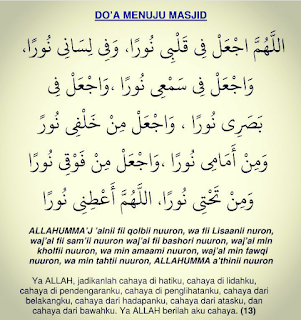 DO'A MENUJU MASJID
اللَّهُمَّ اجْعَلْ فِي قَلْبِي نُورًا، وَفِي لِسَانِي نُورًا،
وَاجْعَلْ فِي سَمْعِي نُورًا ،وَاجْعَلْ فِي
بَصَرِي نُورًا ، وَاجْعَلْ مِنْ خَلْفِي نُورًا
وَمِنْ أَمَامِي نُورًا ،وَاجْعَلْ مِنْ فَوْقِي نُورًا
وَمِنْ تَحْتِي نُورًا. اللَّهُمَّ أَعْطِنِي نُورًا
ALLAHUMMA'J 'alnii fii qolbii nuuron, wa fii Lisaanii nuron,
waj'al fii sam'ii nuuron waj'al fii bashori nuuron, waj'al min
kholfii nuuron, wa min amaami nuuron, waj'al min fawqi
nuuron, wa min tahtii nuuron, ALLAHUMMA a'thinii nuuron
Ya ALLAH, jadikanlah cahaya di hatiku, cahaya di lidahku,
cahaya di pendengaranku, cahaya di penglihatanku, cahaya dari
belakangku, cahaya dari hadapanku, cahaya dari atasku, dan
cahaya dari bawahku. Ya ALLAH berilah aku cahaya. (13)